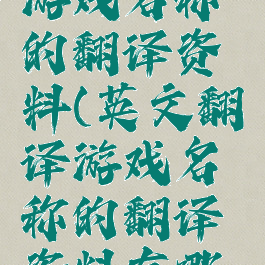 游戏名称
的翻译资
料(英文翻
译游戏名
称的翻译
资料有哪